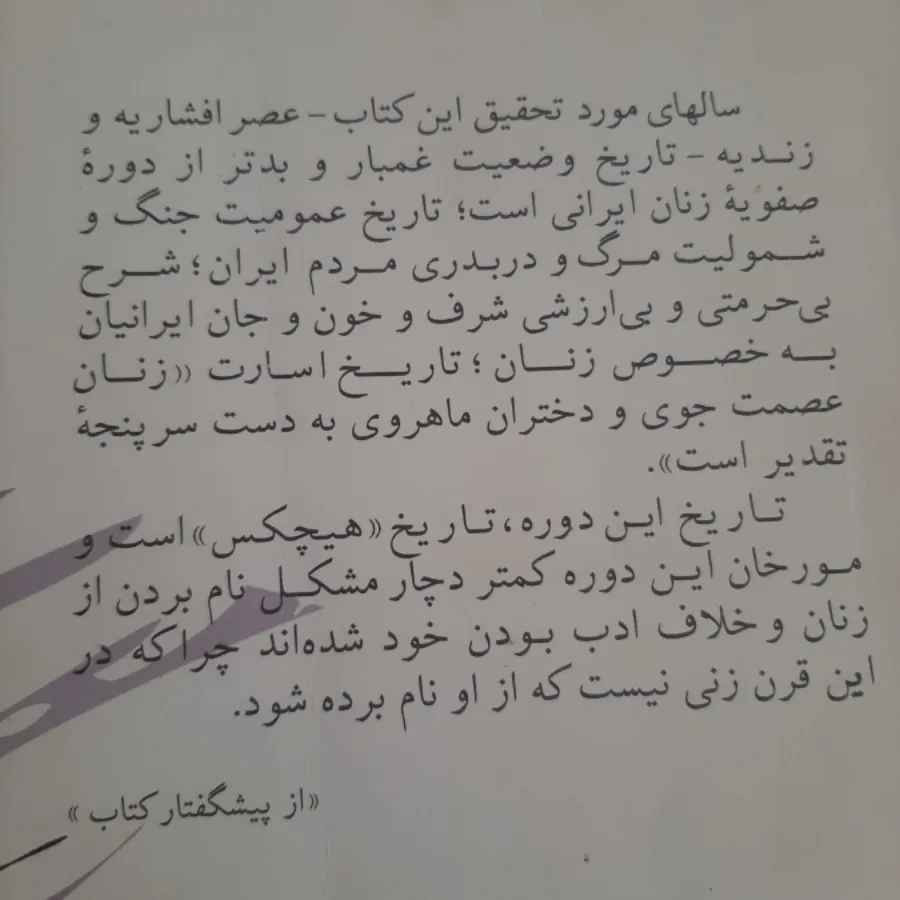 سالهای مورد تحقیق این کتاب - عصر افشاریه و
زندیه - تاریخ وضعیت غمبار و بدتر از دورهٔ
صفویهٔ زنان ایرانی است؛ تاریخ عمومیت جنگ و
شمولیت مرگ و دربدری مردم ایران؛ شرح
بی‌حرمتی و بی‌ارزشی شرف و خون و جان ایرانیان
به خصوص زنان؛ تاریخ اسارت «زنان
عصمت جوی و دختران ماهروی به دست سرپنجهٔ
تقدیر است».
تاریخ این دوره، تاریخ «هیچکس» است و
مورخان این دوره کمتر دچار مشکل نام بردن از
زنان و خلاف ادب بودن خود شده‌اند چرا که در
این قرن زنی نیست که از او نام برده شود.
«از پیشگفتار کتاب»